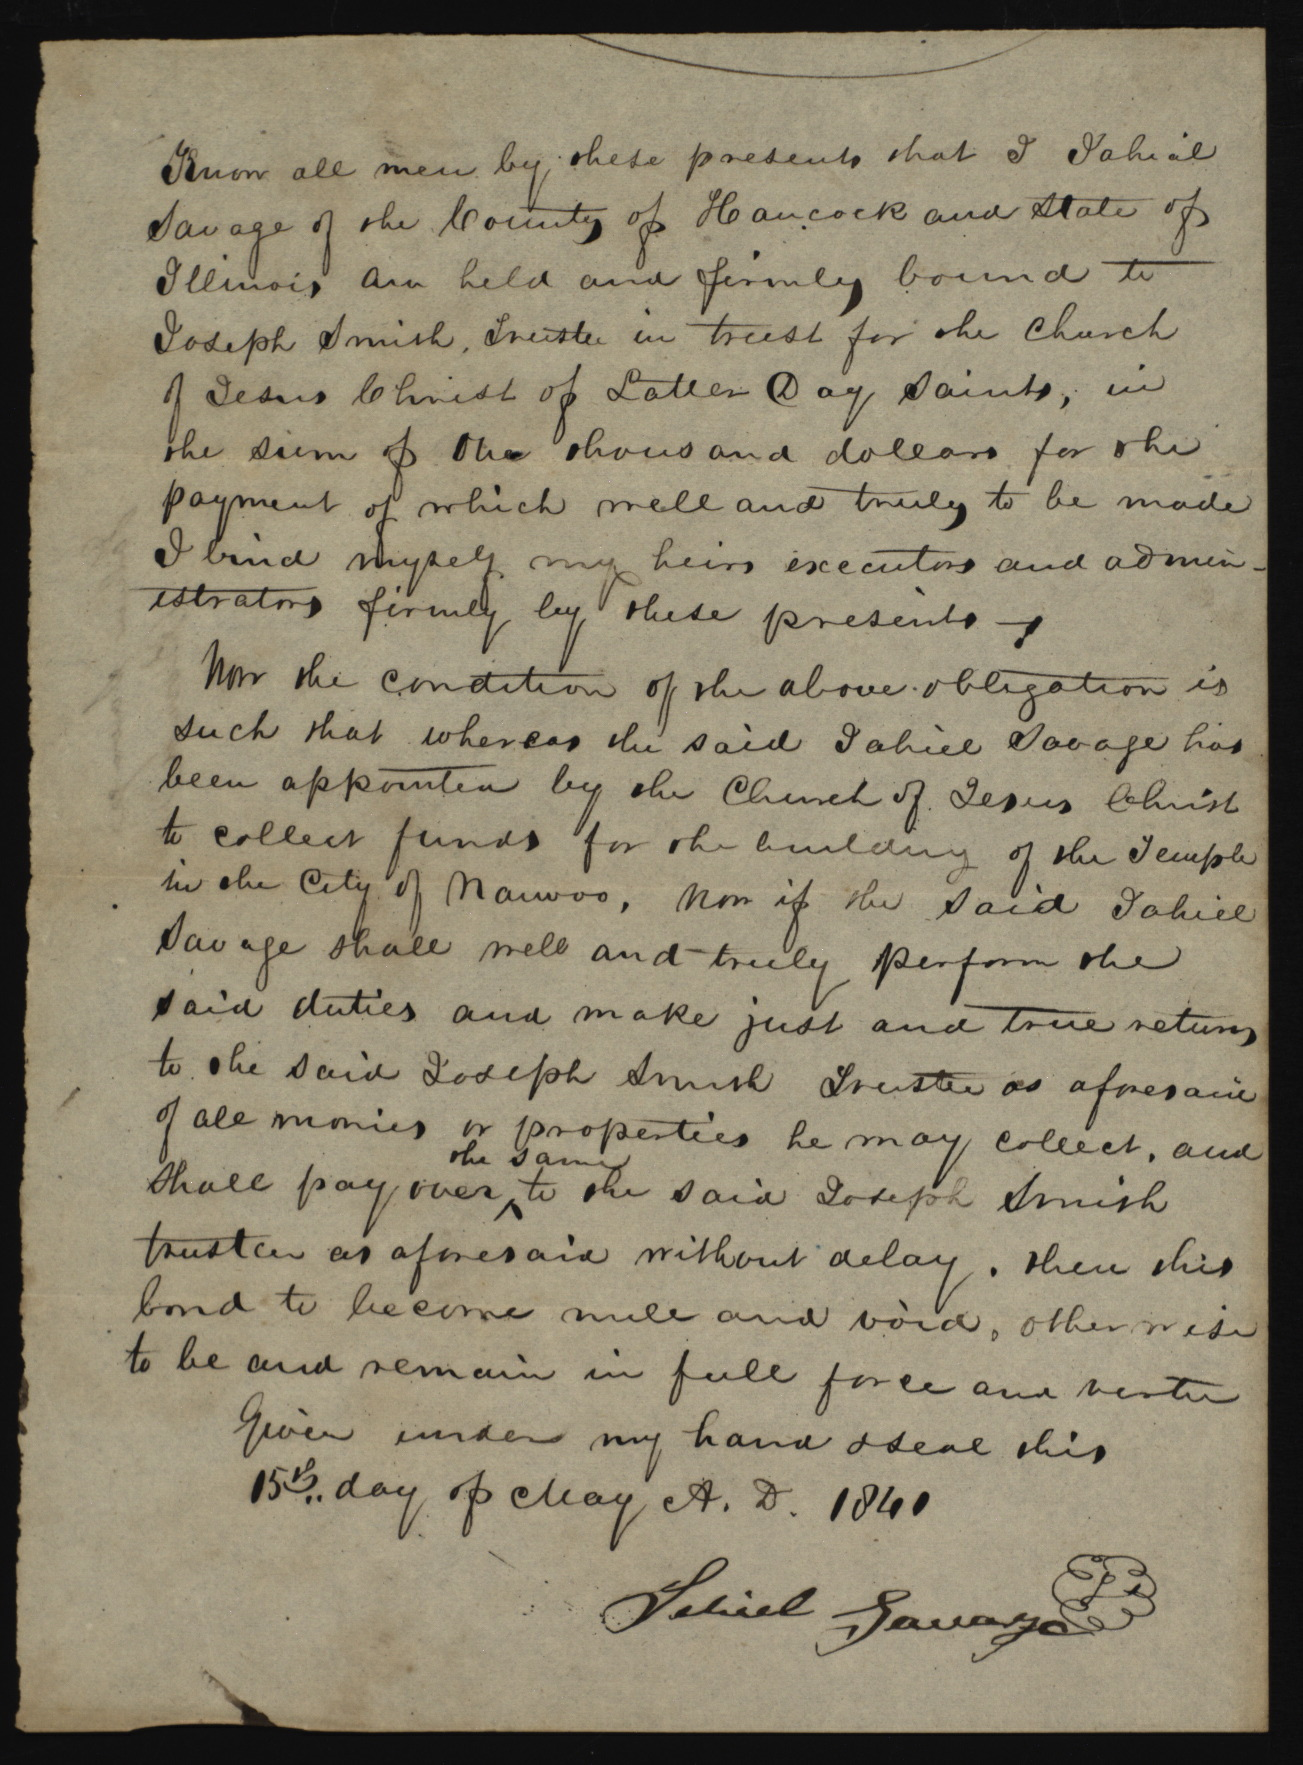 Know all men by these presents that I Jahial
Savage of the County of Hancock and State of
Illinois am held and firmly bound to
Joseph Smith, Trustee in trust for the Church
of Jesus Christ of Latter Day Saints, in
the sum of One thousand dollars for the
payment of which well and truly to be made
I bind myself my heirs executors and admin-
istrators firmly by these presents —,
Now the condition of the above obligation is
such that whereas the said Jahiel Savage has
been appointed by the Church of Jesus Christ
to collect funds for the building of the Temple
in the City of Nauvoo, Now if the said Jahiel
Savage shall well and truly perform the
said duties and make just and true returns
to the said Joseph Smith Trustee as aforesaid
of all monies or properties he may collect, and
the same
shall pay over ^ to the said Joseph Smith
trustee as aforesaid without delay, then this
bond to become null and void, otherwise
to be and remain in full force and vertue
Given under my hand & seal this
15th.. day of May A. D. 1841
Jehiel Savage